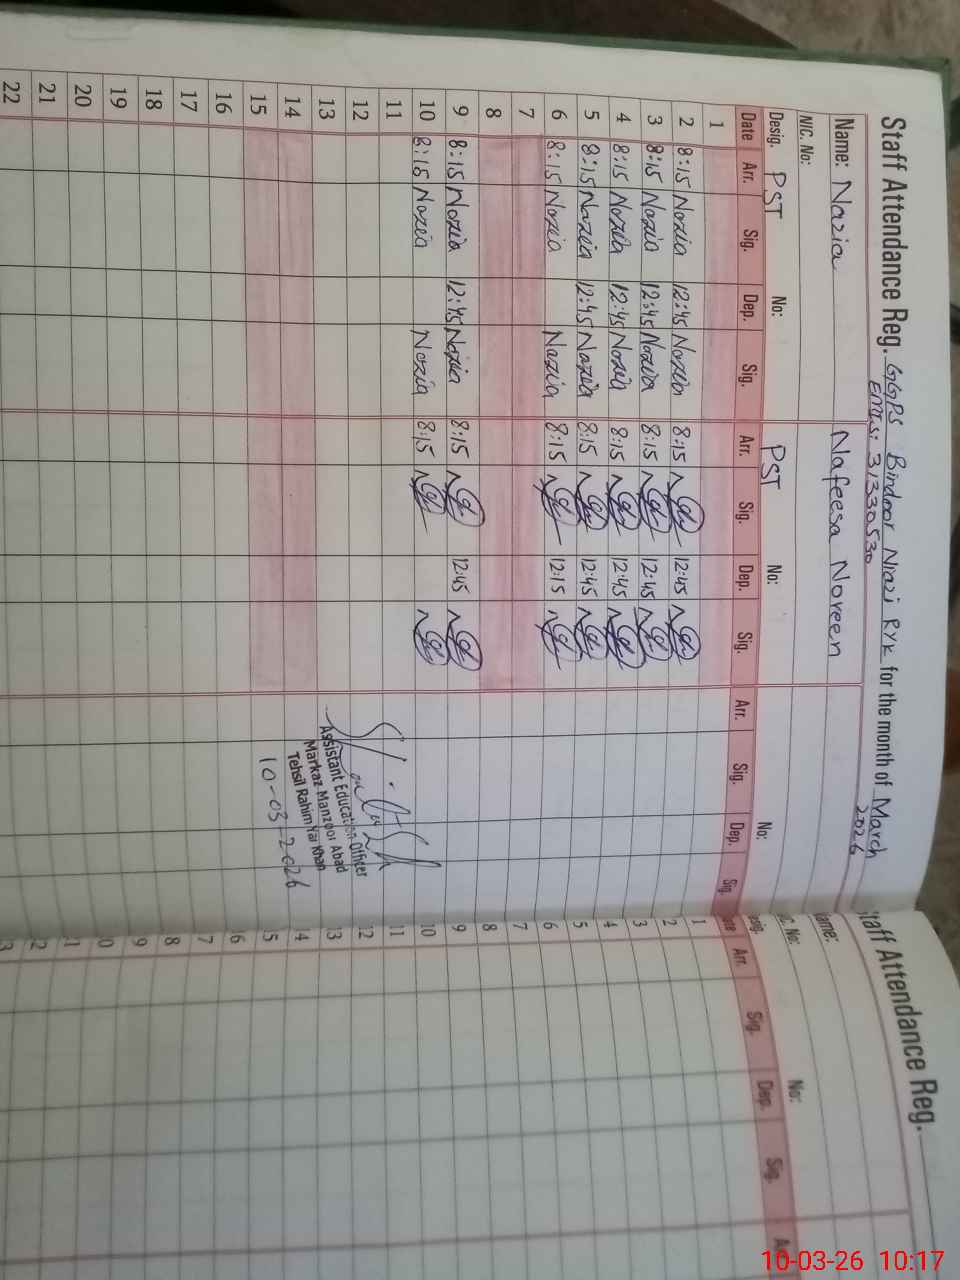 Staff Attendance Reg. GGPS Bindoor Niazi RYK for the month of March 2026
EMIS: 31330530
Name: Nazia Nafeesa Noreen
N/C. No:
Desig. PST No: PST No: No:
Date Arr. Sig. Dep. Sig. Arr. Sig. Dep. Sig. Arr. Sig. Dep. Sig.
1
2 8:15 Nazia 12:45 Nazia 8:15 12:45
3 8:15 Nazia 12:45 Nazia 8:15 12:45
4 8:15 Nazia 12:45 Nazia 8:15 12:45
5 8:15 Nazia 12:45 Nazia 8:15 12:45
6 8:15 Nazia Nazia 8:15 12:15
7
8
9 8:15 Nazia 12:45 Nazia 8:15 12:45
10 8:15 Nazia Nazia 8:15
11
12
13
14
15
16
17
18
19
20
21
22
Assistant Education Officer
Markaz Manzoor Abad
Tehsil Rahim Yar Khan
10-03-2026
Staff Attendance Reg.
ame:
C. No: No:
esig.
ate Arr. Sig. Dep. Sig. A
1
2
3
4
5
6
7
8
9
10
11
12
13
14
15
16
7
8
9
0
1
2
3
10-03-26 10:17